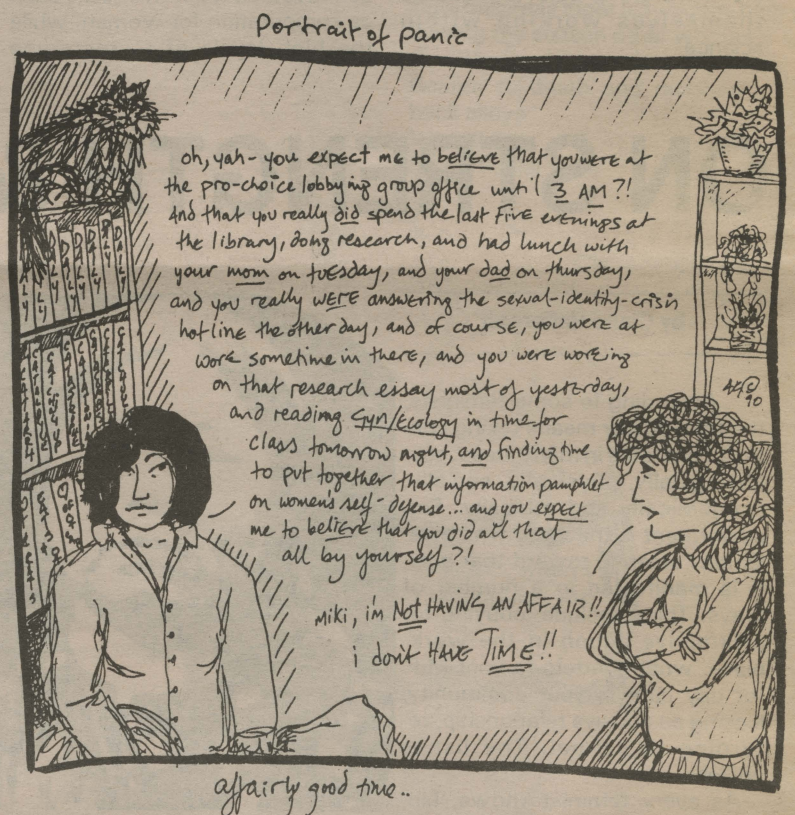 Portrait of panic
oh, yah- you expect me to believe that you were at
the pro-choice lobbying group office until 3 AM?!
And that you really did spend the last Five evenings at
the library, doing research, and had lunch with
your mom on tuesday, and your dad on thursday,
and you really WERE answering the sexual-identity-crisis
hot-line the other day, and of course, you were at
work sometime in there, and you were working
on that research essay most of yesterday,
and reading Gyn/Ecology in time for
class tomorrow night, and finding time
to put together that information pamphlet
on women's self-defense... and you expect
me to believe that you did all that
all by yourself?!
miki, i'm Not HAVING AN AFFAIR!!
i don't HAVE TIME!!
DAILY
DAILY
DAILY
DAILY
DAILY
CATS
90
affairly good time..